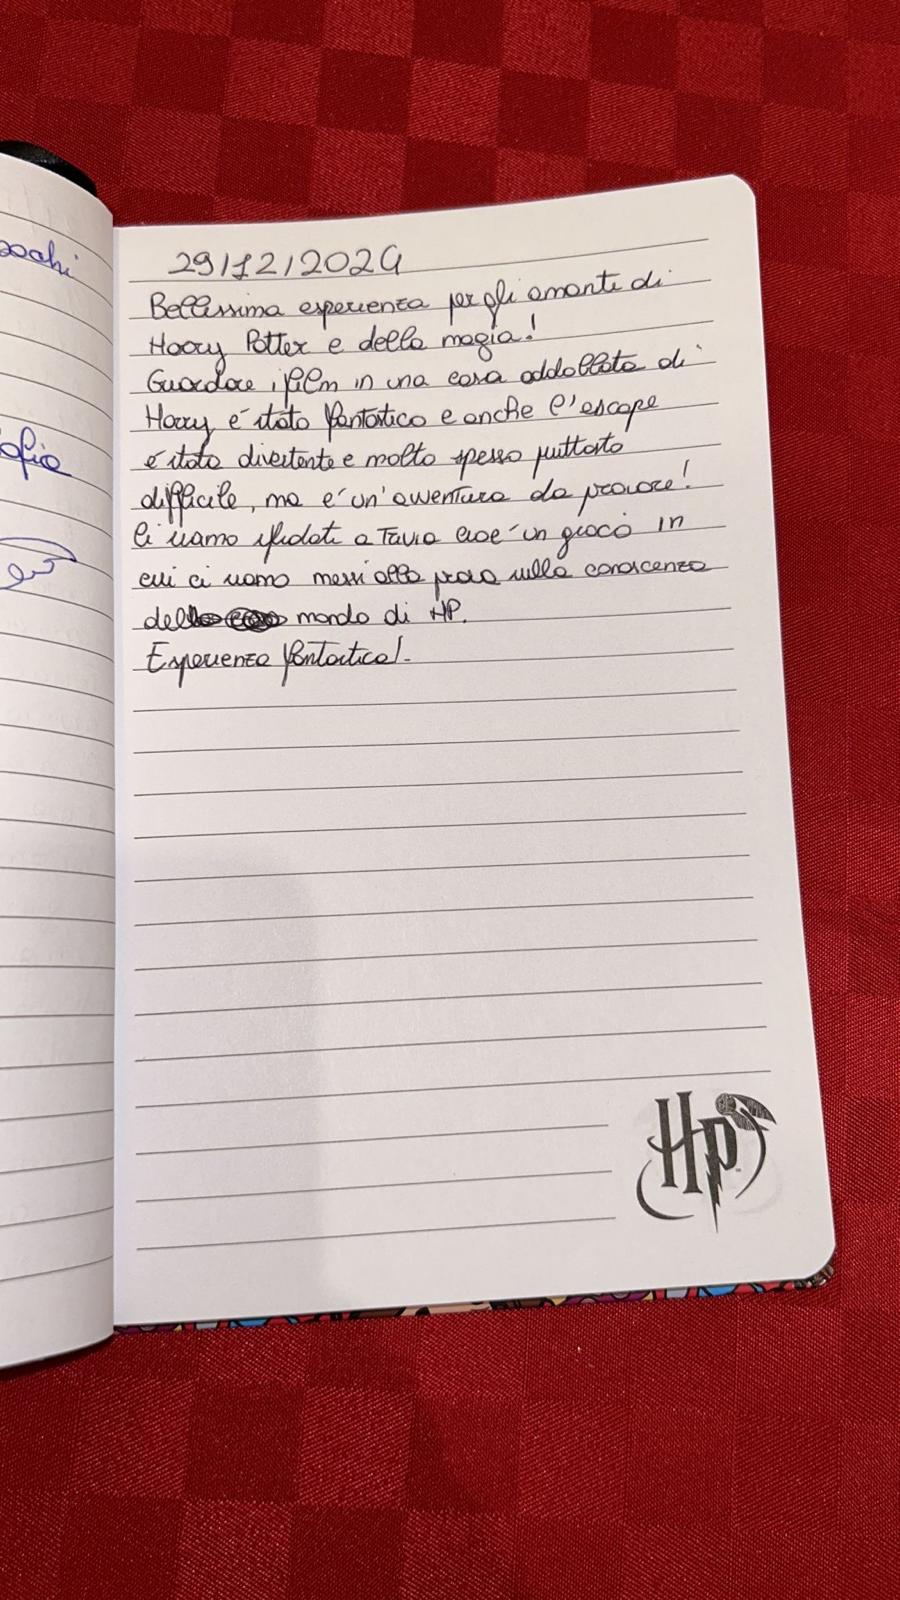 29/12/2024
Bellissima esperienza per gli amanti di
Harry Potter e della magia!
Guardare i film in una casa addobbata di
Harry é stato fantastico e anche l'escape
é stato divertente e molto spesso piuttosto
difficile, ma é un'avventura da provare!
Ci siamo sfidati a Travia cioé un gioco in
cui ci siamo messi alla prova sulla conoscenza
del mondo di HP.
Esperienza fantastica!
HP